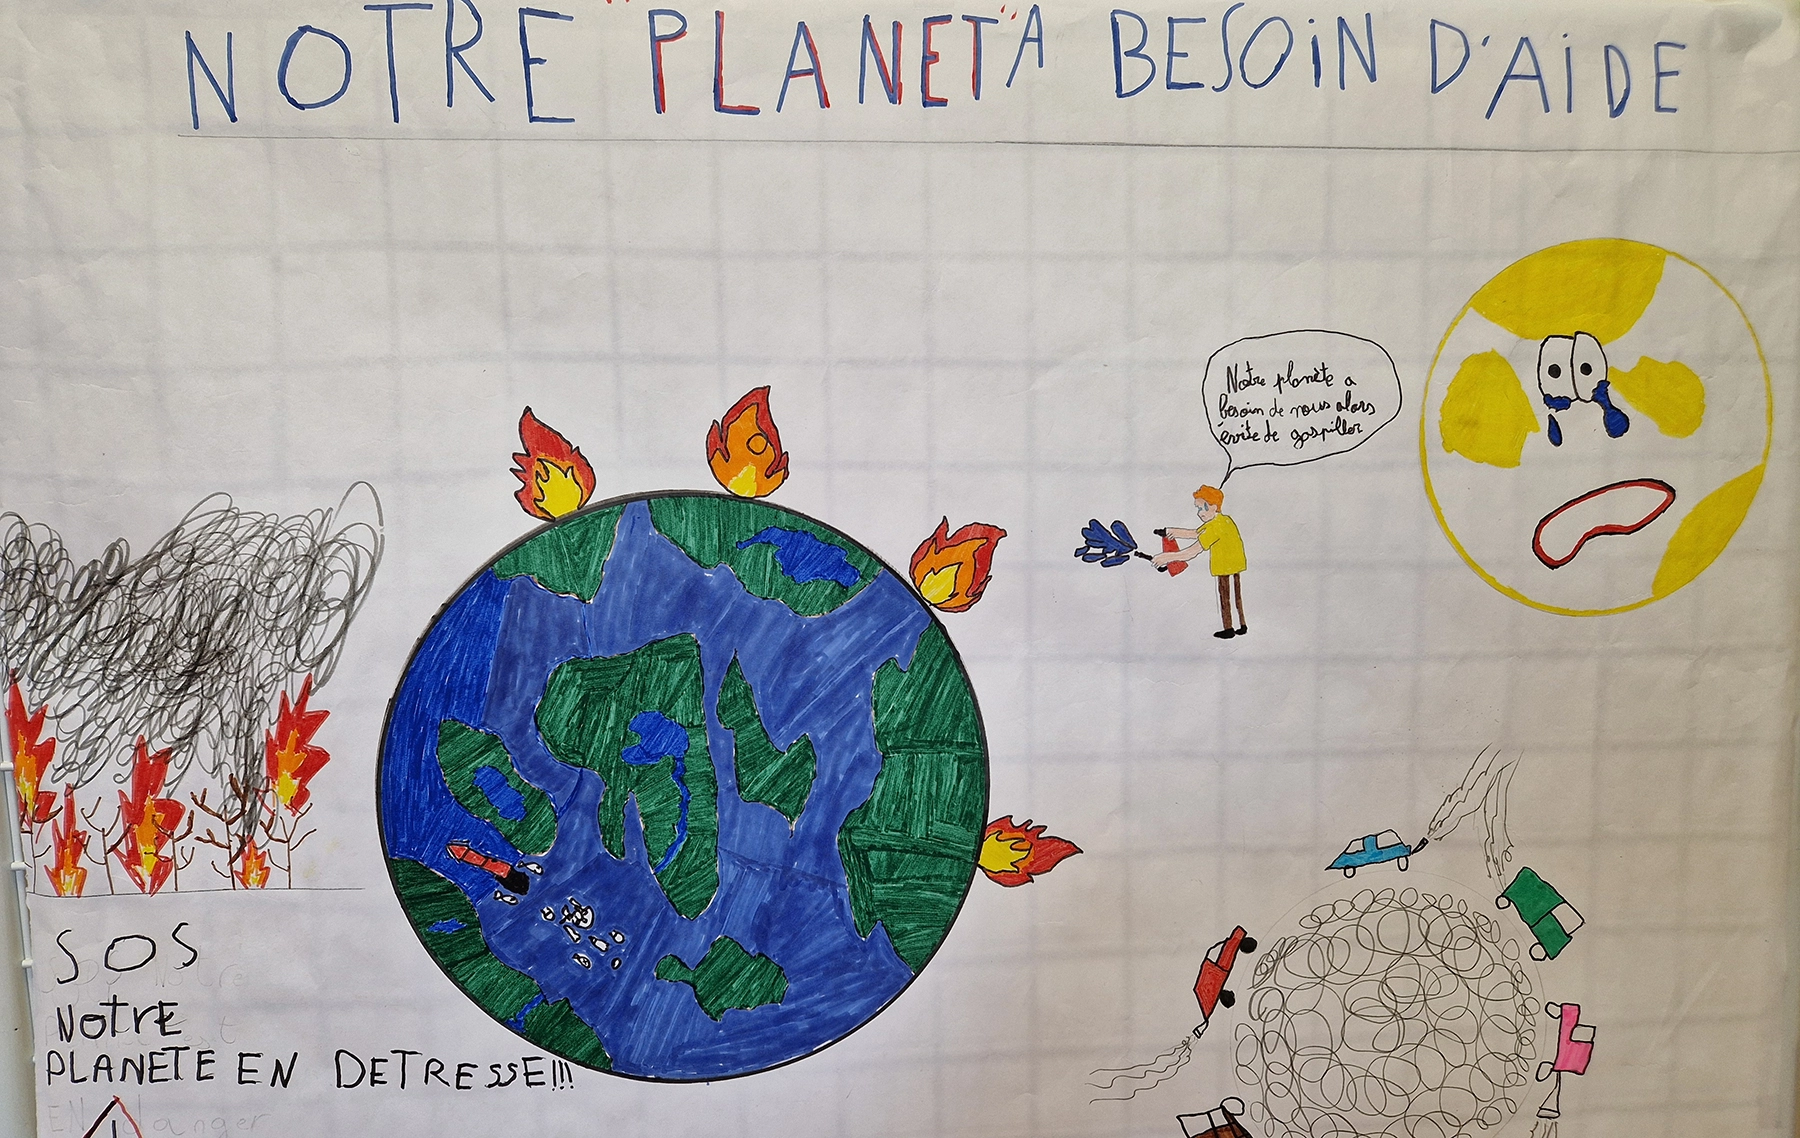 NOTRE "PLANET" A BESOiN D'AiDE
Notre planète a
besoin de nous alors
évite de gaspiller
SOS
NOTRE
PLANETE EN DETRESSE!!!
EN danger